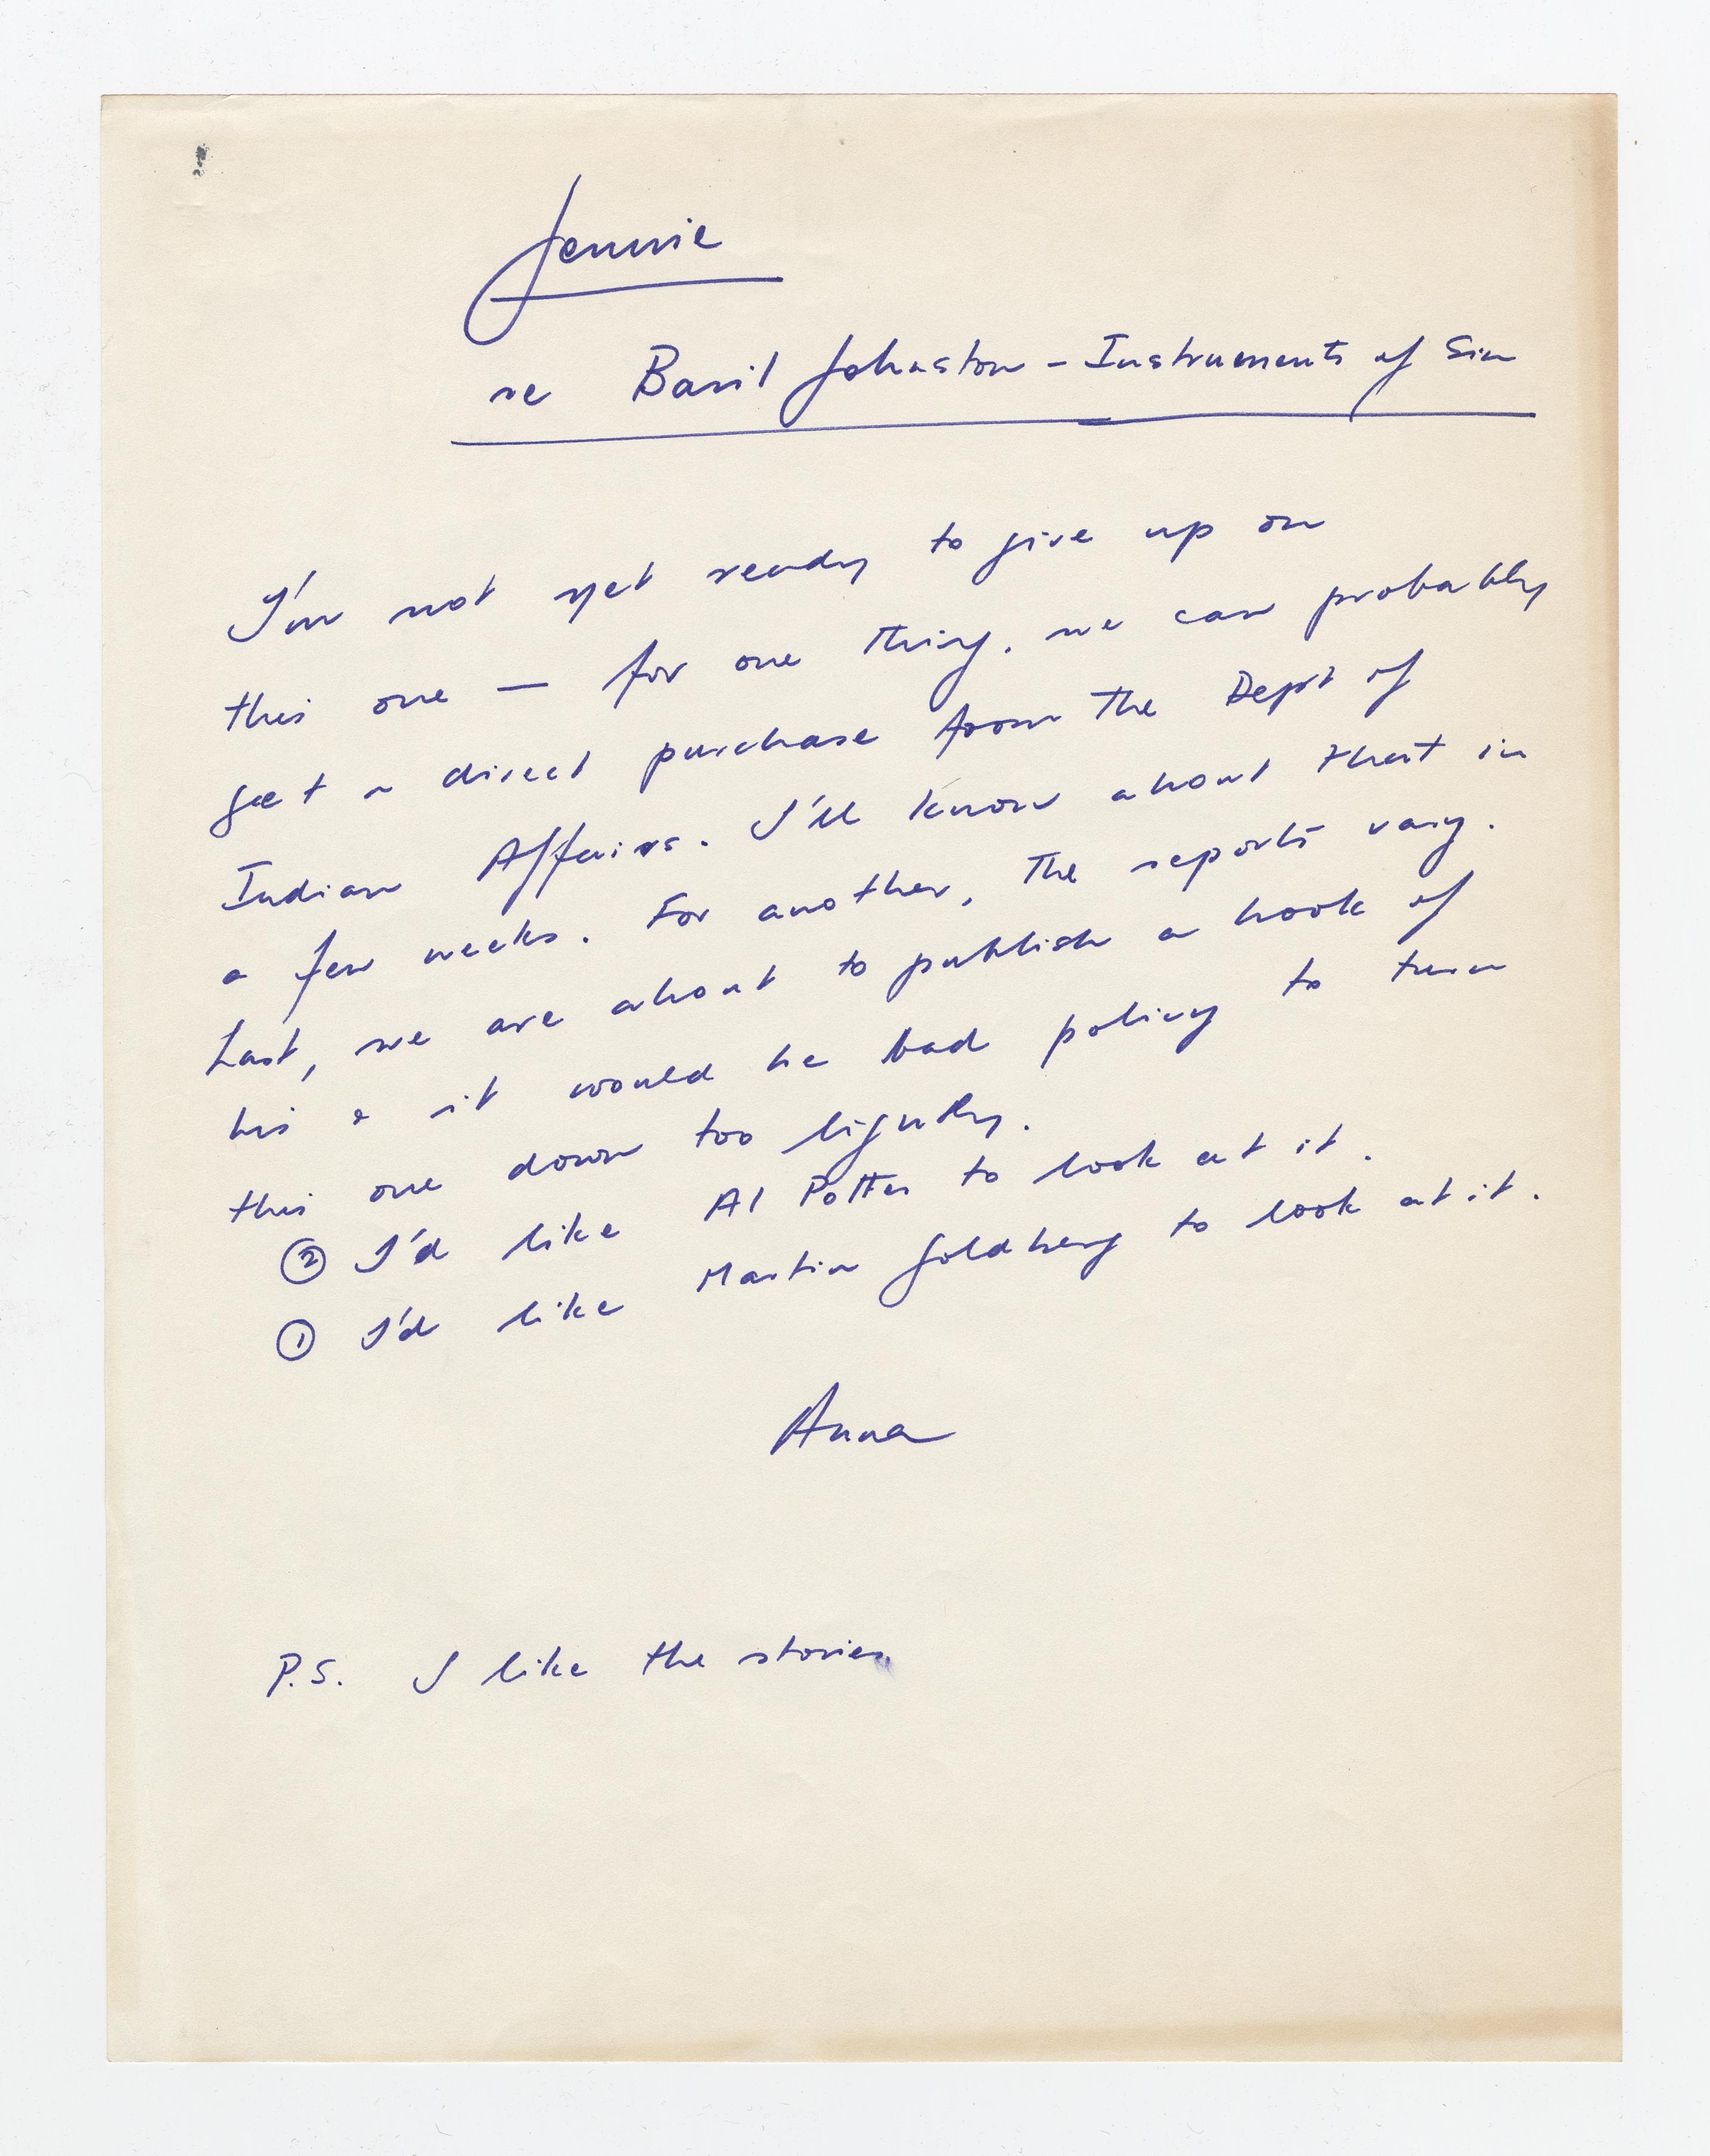 Jennie
re Basil Johnston - Instruments of Sin
I'm not yet ready to give up on
this one — for one thing, we can probably
get a direct purchase from the Dept of
Indian Affairs. I'll know about that in
a few weeks. For another, the reports vary.
Last, we are about to publish a book of
his & it would be bad policy to turn
this one down too lightly.
② I'd like Al Potter to look at it.
① I'd like Martin Goldberg to look at it.
Anna
P.S. I like the stories.